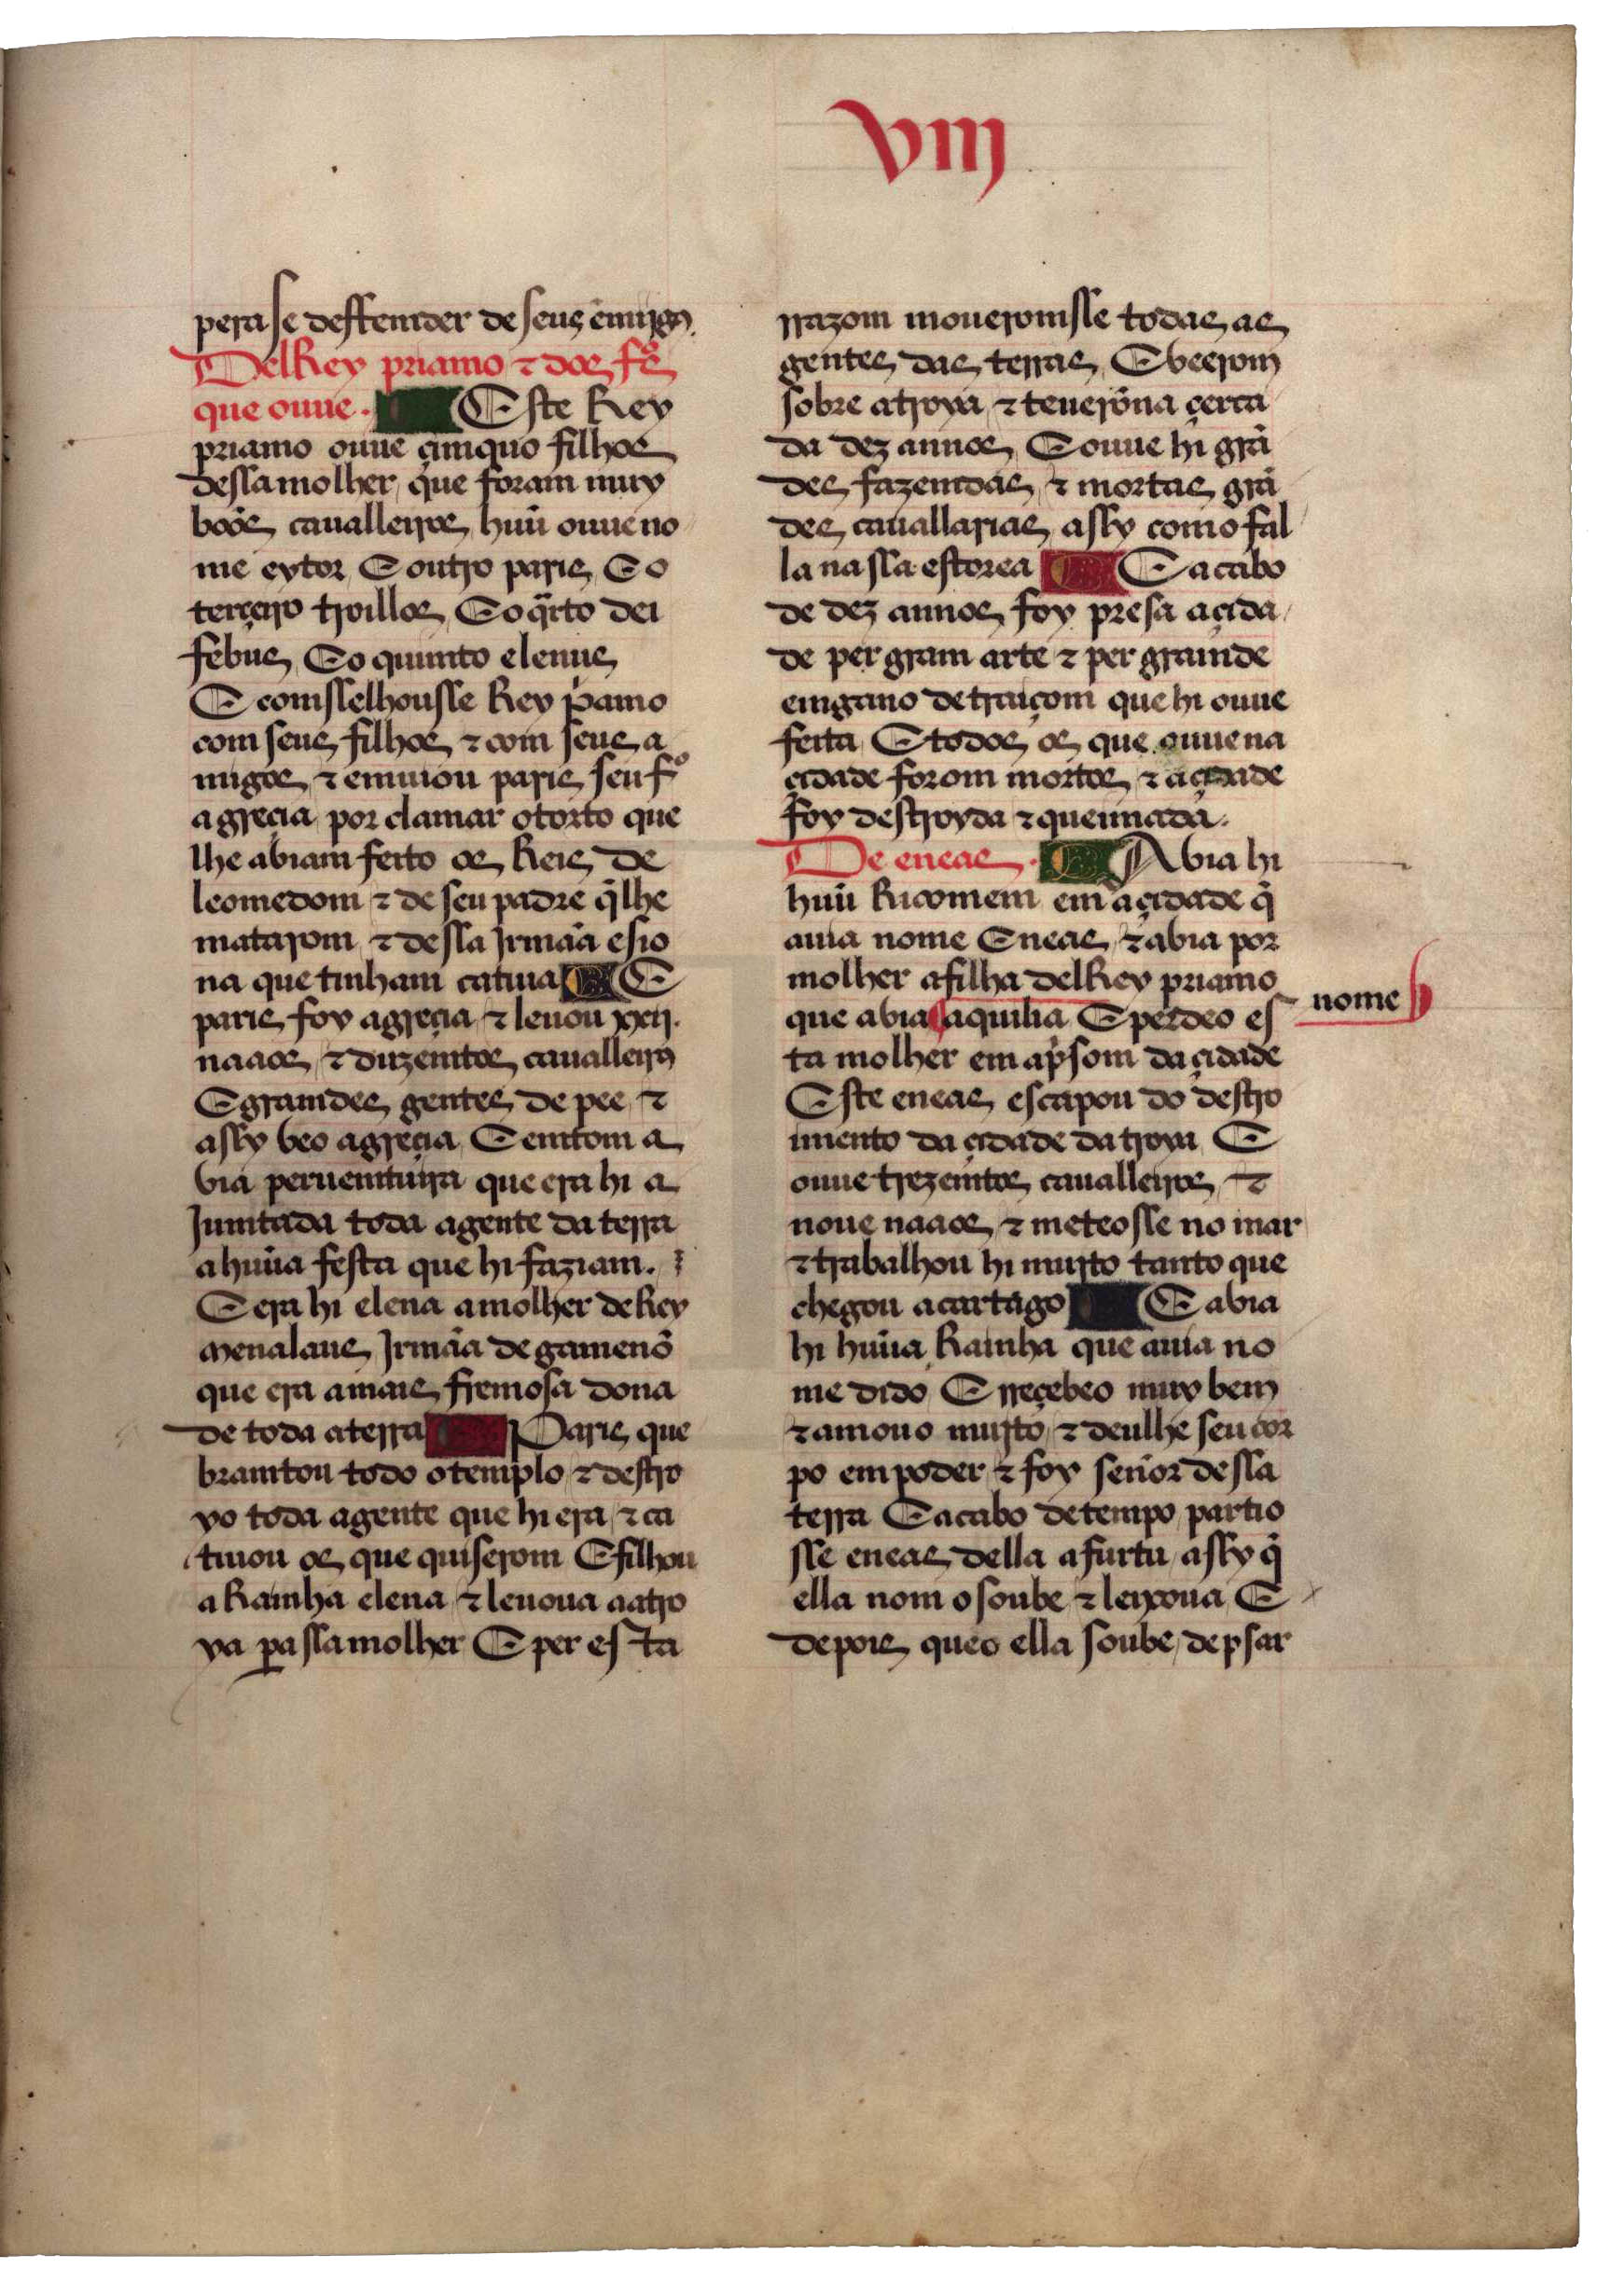 viij
pera se deffemder de seus emmigos.
Del Rey priamo ⁊ dos fos
que ouue . Este Rey
priamo ouue çimquo filhos
dessa molher / que foram muy
boos caualleiros / huũ ouue no
me eytor / E outro paris / E o
terçeiro troillos / E o qrto dei
febus / E o quimto elenus /
E comsselhousse Rey pamo
com seus filhos ⁊ com seus a
migos / ⁊ emuiou paris seu fo
a greçia / por clamar o torto que
lhe abiam feito os Reis de
leomedom ⁊ de seu padre q̃ lhe
matarom / ⁊ dessa Jrmãa esio
na que tinham catiua E
paris foy a greçia / ⁊ leuou xxij.
naaos / ⁊ duzemtos caualleiros
E gramdes gentes de pee / ⁊
assy beo a greçia / E emtom a
bia peruemtuira que era hi a
Jumtada toda a gente da terra
a huũa festa que hi faziam . ⁊
E era hi elena a molher de Rey
menalaus / Jrmãa de gamenõ
que era a mais fremosa dona
de toda a terra Paris que
bramtou todo o templo / ⁊ destro
yo toda a gente que hi era / ⁊ ca
tiuou os que quiserom E filhou
a Rainha elena / ⁊ leuoua aa tro
ya pa ssa molher E per esta
rrazom moueromsse todas as
gentes das terras / E beerom
sobre a troya / ⁊ teuerõna çerca
da dez annos / E ouue hi grã
des fazemdas / ⁊ mortas grã
des cauallarias / assy como fal
la na ssa estorea E a cabo
de dez annos / foy presa a çida /
de per gram arte ⁊ per gramde
emgano de traiçom que hi ouue
feita / E todos os que ouue na
çidade forom mortos / ⁊ a çidade
foy destroyda ⁊ queimada .
De eneas . Abia hi
huũ Ricomem em a çidade q̃
auia nome Eneas / ⁊ abia por
molher a filha del Rey priamo
que abia aquilia E perdeo es
nome
ta molher em a psom da çidade
Este eneas escapou do destro
imento da çidade da troya / E
ouue trezemtos caualleiros / ⁊
noue naaos / ⁊ meteosse no mar
⁊ trabalhou hi muito tanto que
chegou a cartago E abia
hi huũa Rainha que auia no
me dido / E rreçebeo muy bem
⁊ amouo muito / ⁊ deulhe seu cor
po em poder / ⁊ foy señor dessa
terra E a cabo de tempo / partio
sse eneas della a furtu / assy q̃
ella nom o soube ⁊ leixoua / E
depois que o ella soube / de psar